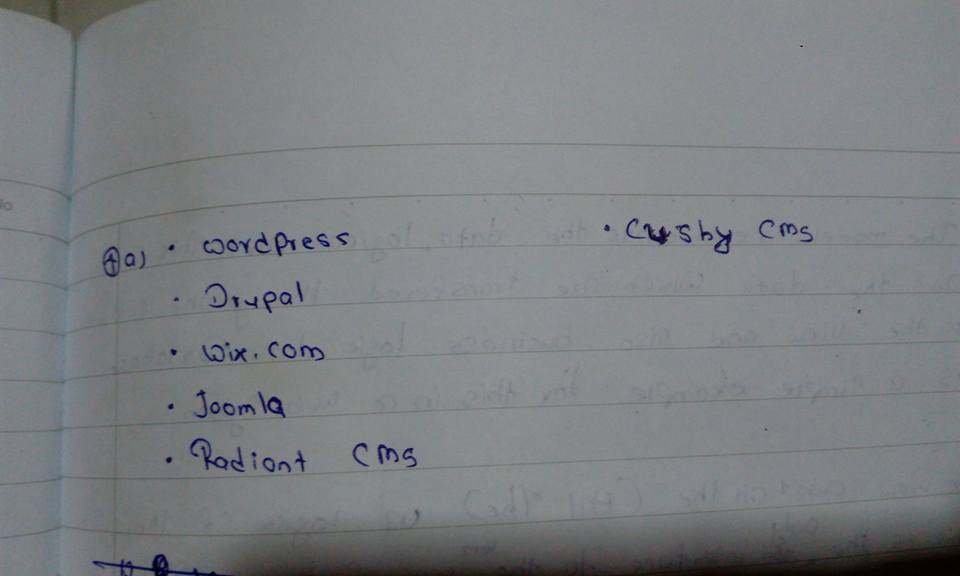 ④a) • wordpress
• Drupal
• wix.com
• Joomla
• Radiant CMS
• Cushy CMS